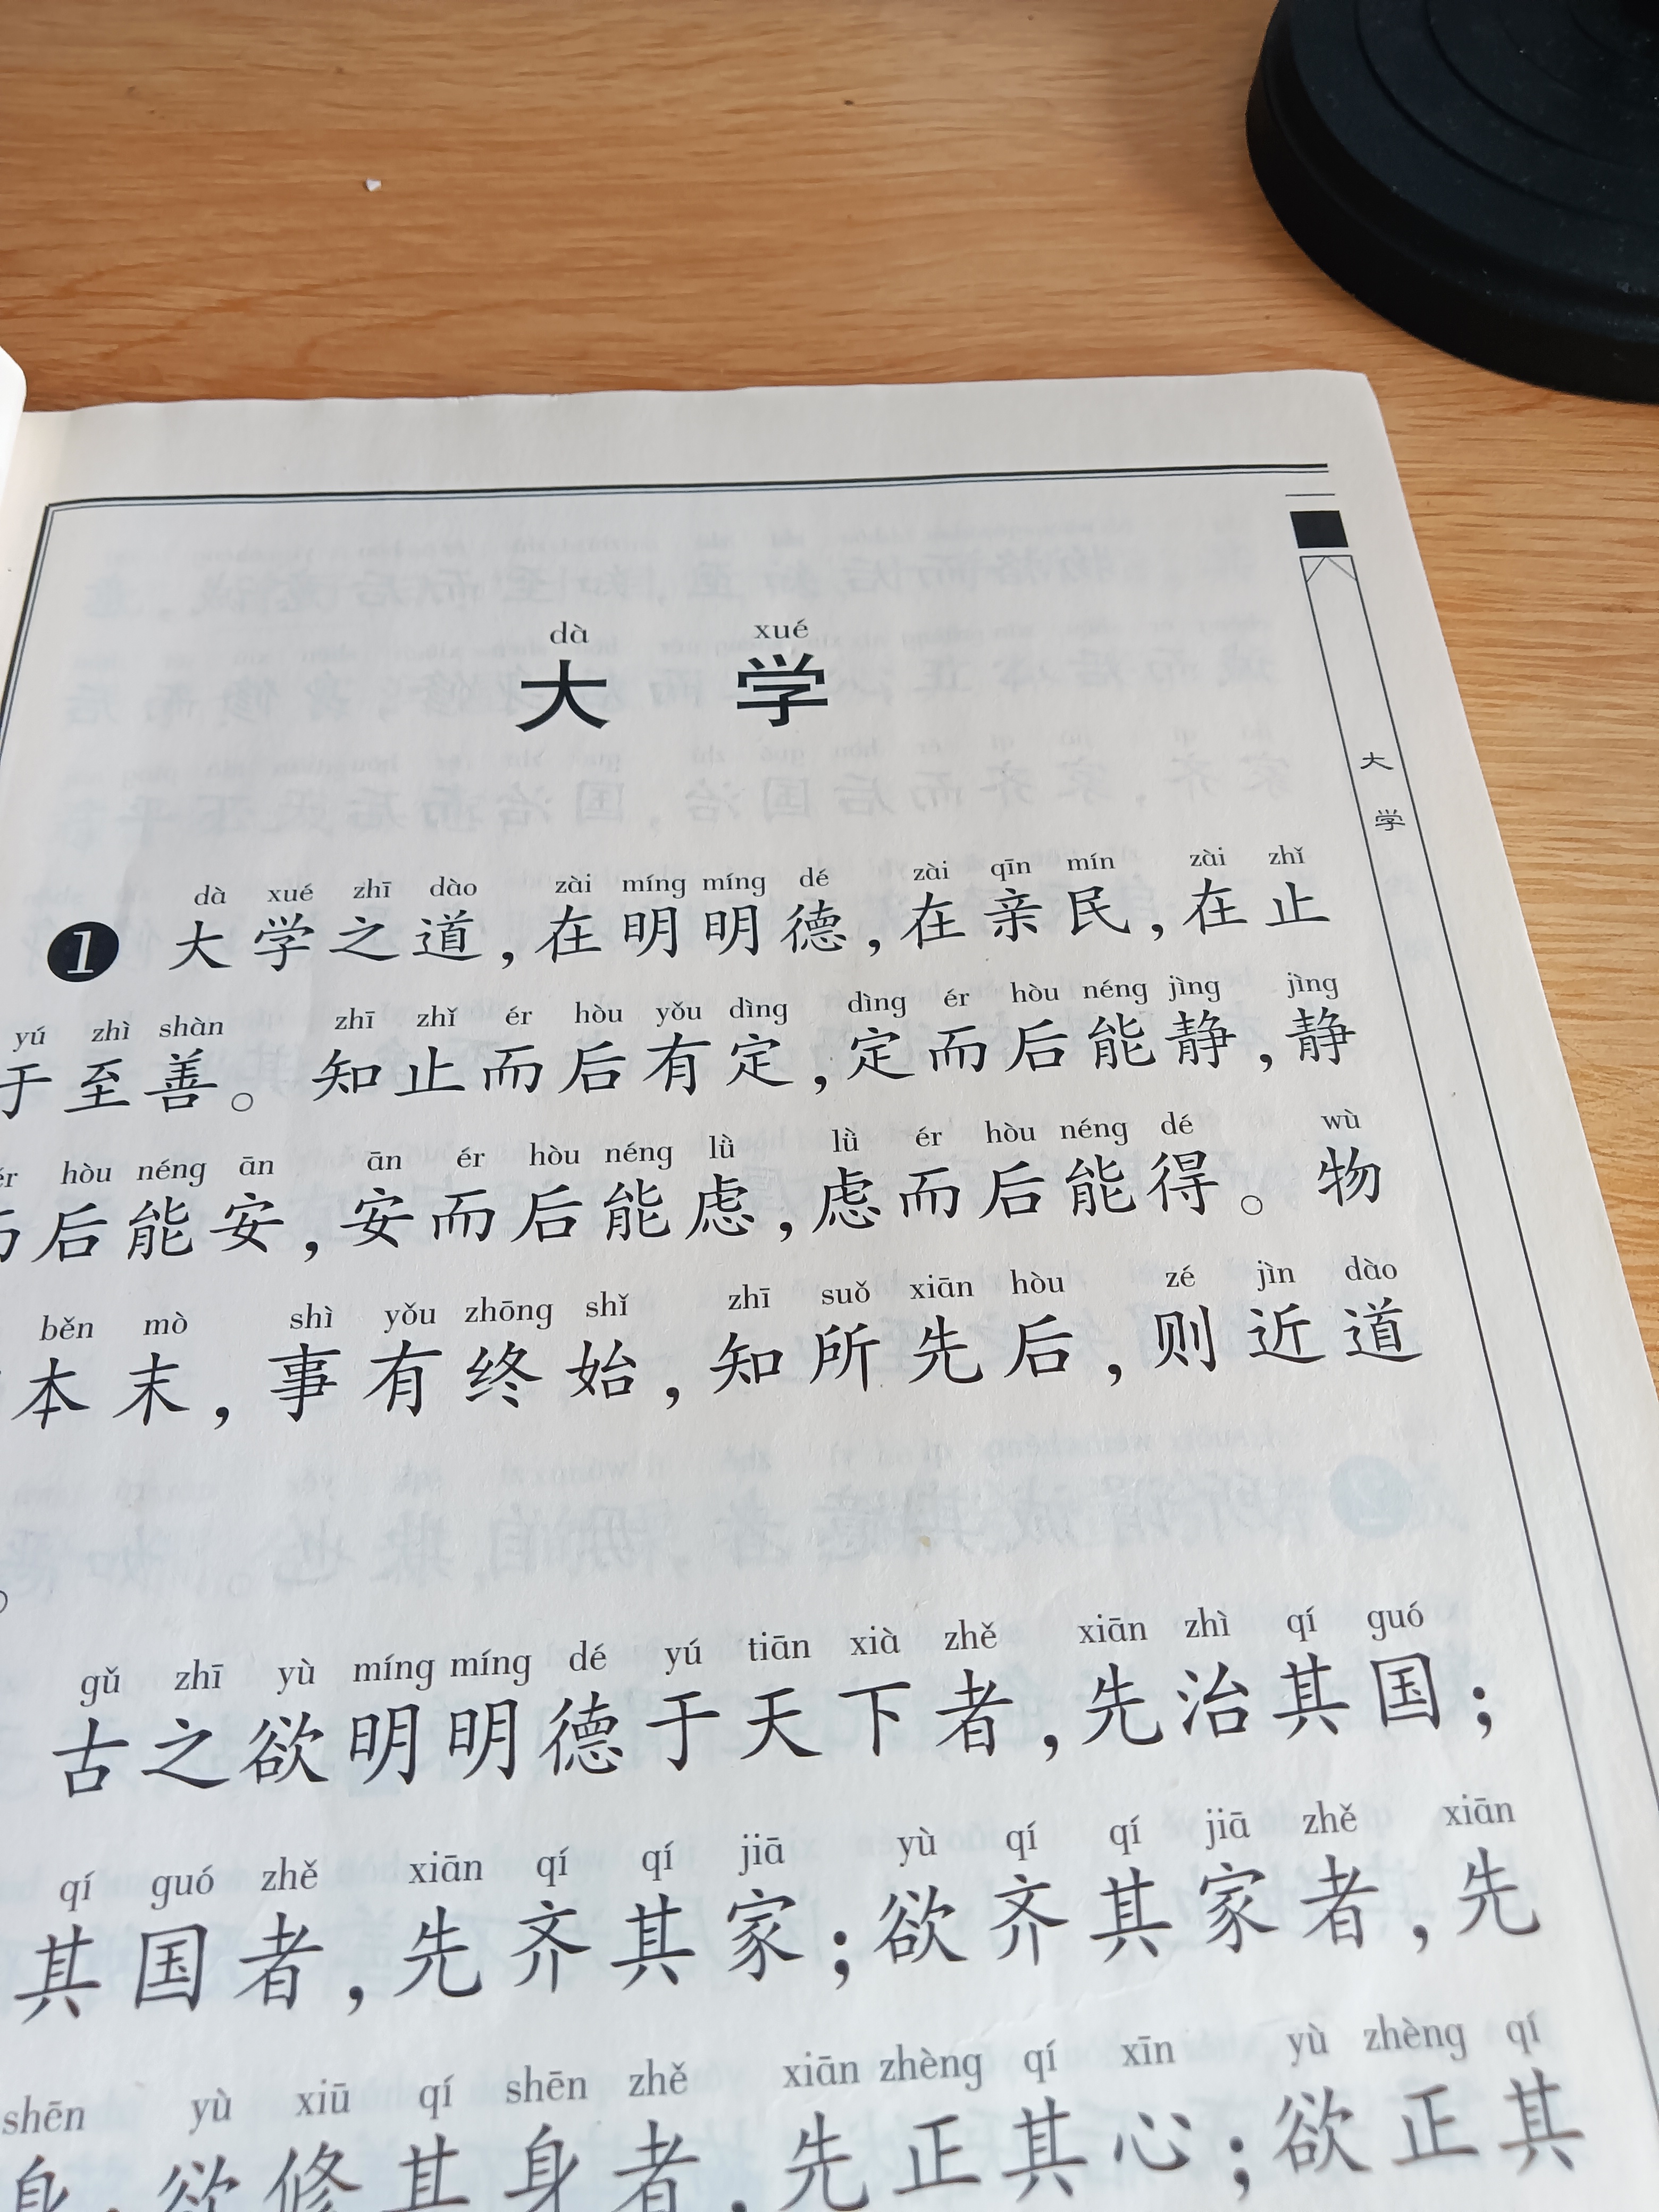 dà xué
大 学
大学
dà xué zhī dào zài míng míng dé zài qīn mín zài zhǐ
1 大学之道,在明明德,在亲民,在止
yú zhì shàn zhī zhǐ ér hòu yǒu dìng dìng ér hòu néng jìng jìng
于至善。知止而后有定,定而后能静,静
hòu néng ān ān ér hòu néng lǜ lǜ ér hòu néng dé wù
后能安,安而后能虑,虑而后能得。物
běn mò shì yǒu zhōng shǐ zhī suǒ xiān hòu zé jìn dào
本末,事有终始,知所先后,则近道
。
gǔ zhī yù míng míng dé yú tiān xià zhě xiān zhì qí guó
古之欲明明德于天下者,先治其国;
qí guó zhě xiān qí qí jiā yù qí qí jiā zhě xiān
其国者,先齐其家;欲齐其家者,先
shēn yù xiū qí shēn zhě xiān zhèng qí xīn yù zhèng qí
身;欲修其身者,先正其心;欲正其